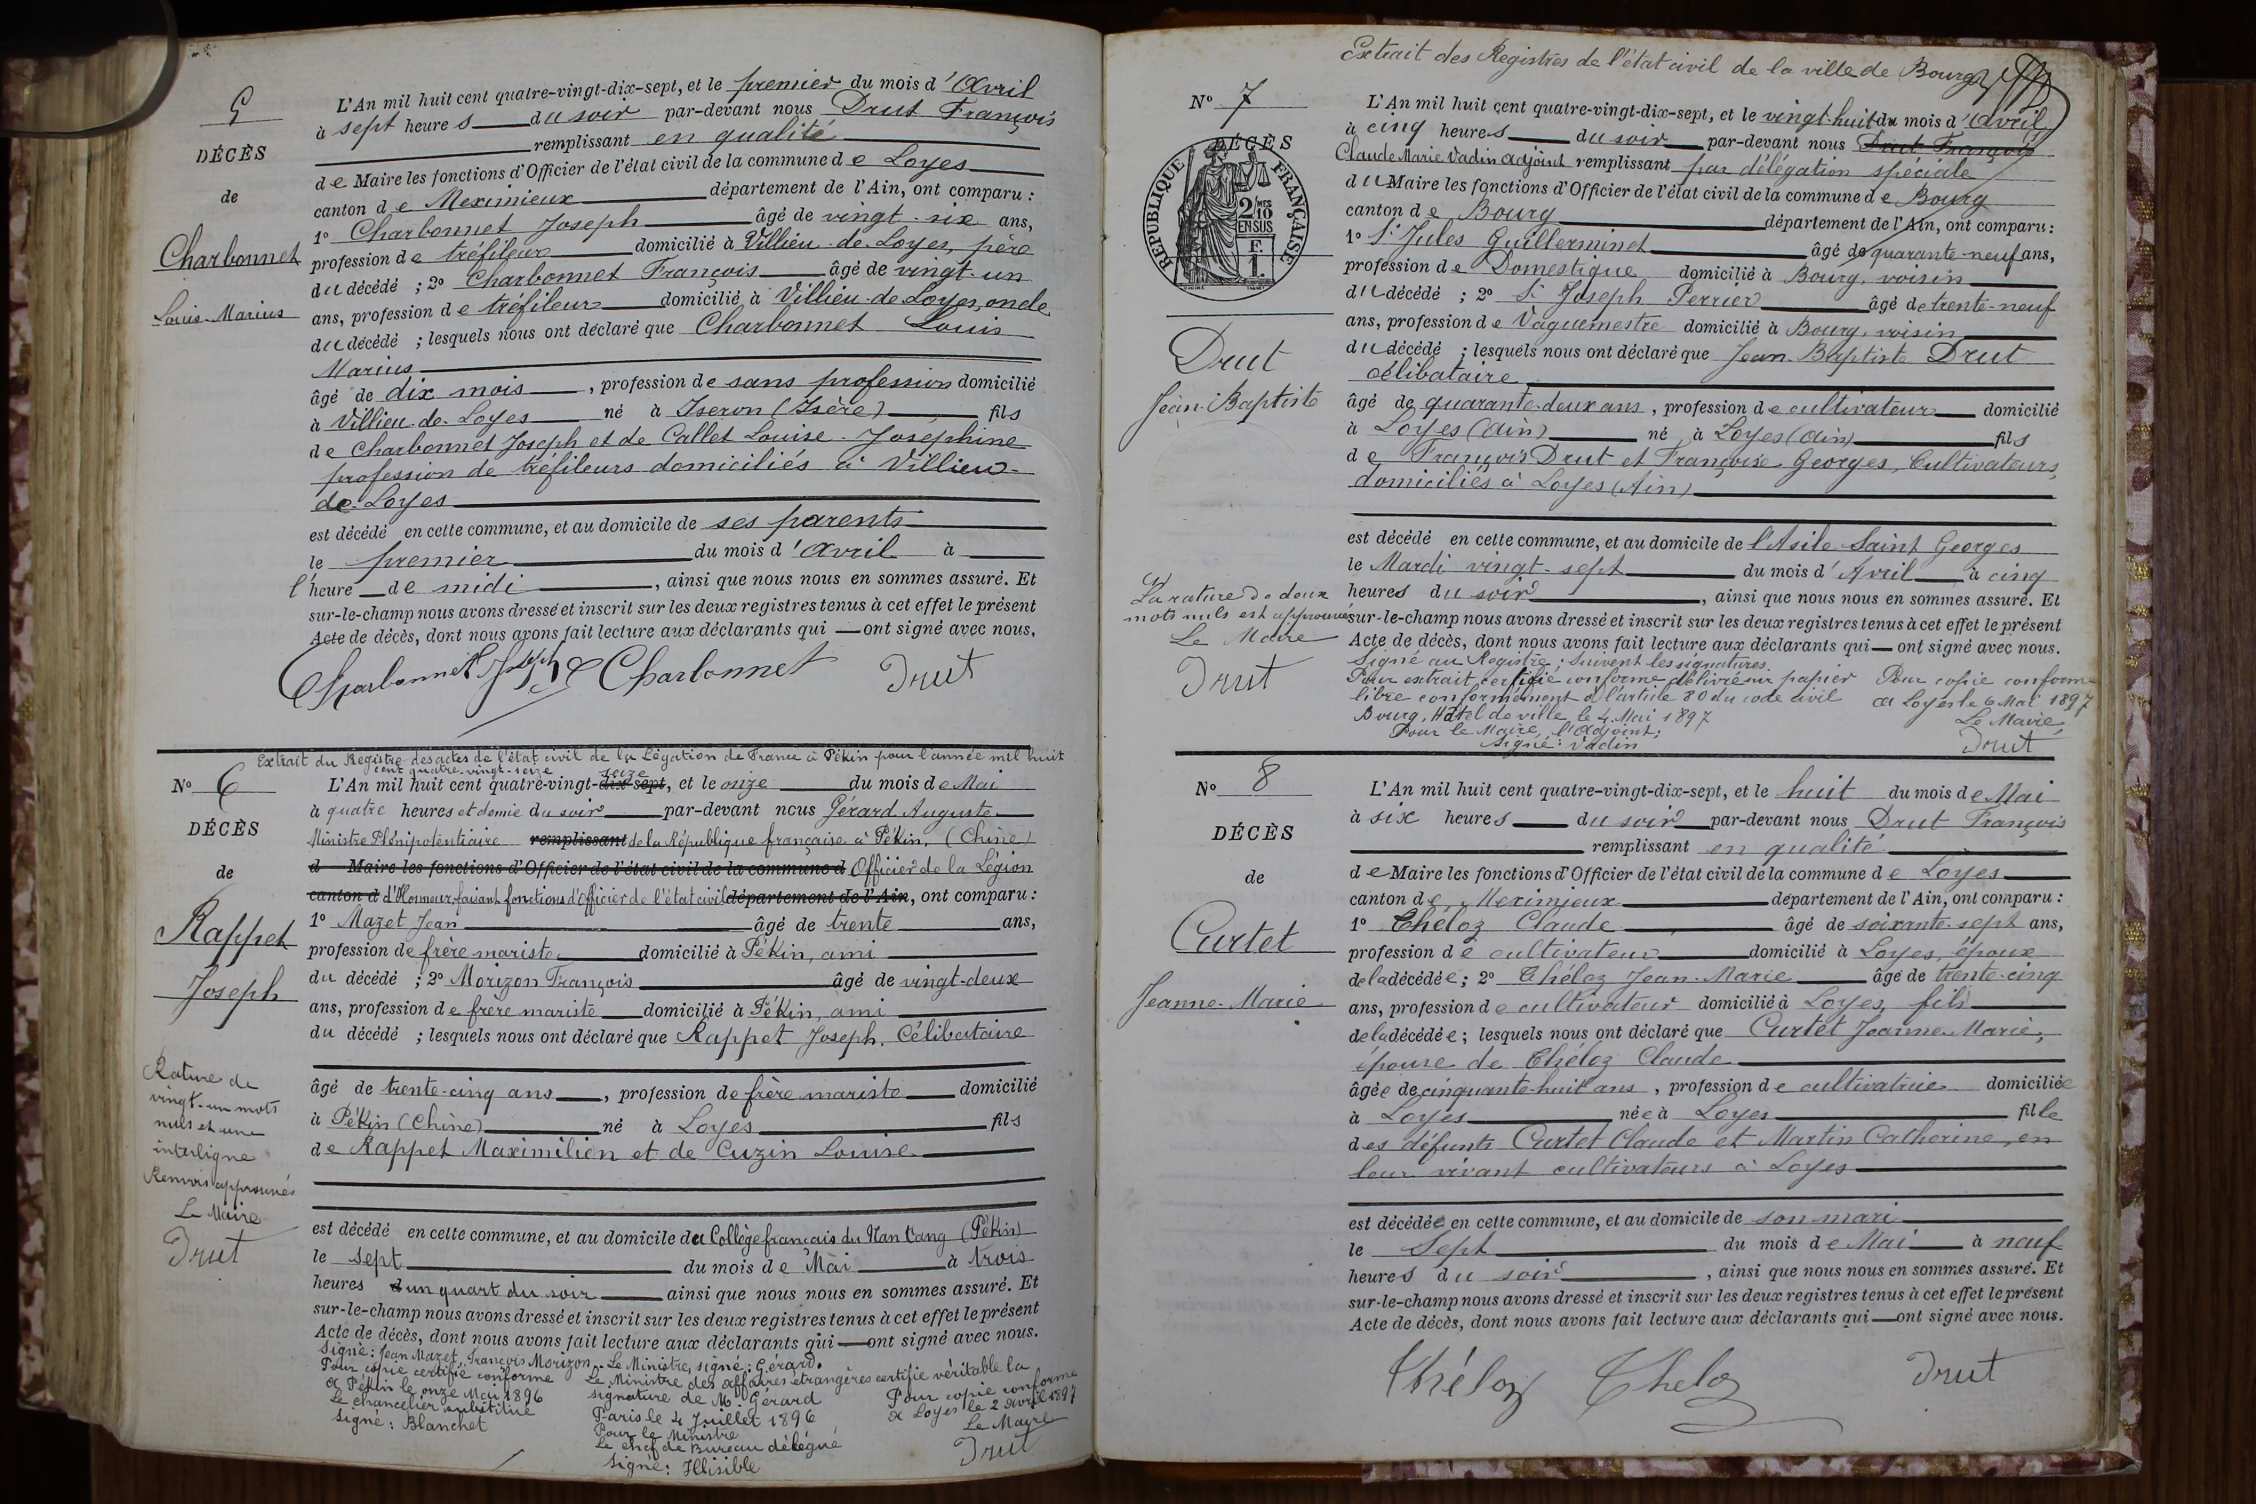 5
DÉCÈS
de
Charbonnet
Louis-Marius
L'An mil huit cent quatre-vingt-dix-sept, et le premier du mois d'Avril
à sept heures du soir par-devant nous Drut François
remplissant en qualité
de Maire les fonctions d'Officier de l'état civil de la commune de Loyes
canton de Meximieux département de l'Ain, ont comparu :
1º Charbonnet Joseph âgé de vingt-six ans,
profession de tréfileur domicilié à Villieu-de-Loyes, père
du décédé ; 2º Charbonnet François âgé de vingt-un
ans, profession de tréfileur domicilié à Villieu-de-Loyes, oncle
du décédé ; lesquels nous ont déclaré que Charbonnet Louis
Marius
âgé de dix mois, profession de sans profession domicilié
à Villieu-de-Loyes né à Iseron (Isère) fils
de Charbonnet Joseph et de Callet Louise-Joséphine
profession de tréfileurs domiciliés à Villieu-
de-Loyes
est décédé en cette commune, et au domicile de ses parents
le premier du mois d'Avril à
l'heure de midi, ainsi que nous nous en sommes assuré. Et
sur-le-champ nous avons dressé et inscrit sur les deux registres tenus à cet effet le présent
Acte de décès, dont nous avons fait lecture aux déclarants qui ont signé avec nous.
Charbonnet Joseph Charbonnet Drut
Extrait du Registre des actes de l'état civil de la Légation de France à Pékin pour l'année mil huit
cent quatre-vingt-seize
Nº 6
DÉCÈS
de
Rappet
Joseph
Rature de
vingt-un mots
nuls et une
interligne
Renvois approuvés
Le Maire
Drut
seize
L'An mil huit cent quatre-vingt-dix-sept, et le onze du mois de Mai
à quatre heures et demie du soir par-devant nous Gérard Auguste
Ministre Plénipotentiaire remplissant de la République française à Pékin, (Chine)
d Maire les fonctions d'Officier de l'état civil de la commune d Officier de la Légion
canton d d'Honneur, faisant fonctions d'officier de l'état civil département de l'Ain, ont comparu :
1º Mazet Jean âgé de trente ans,
profession de frère mariste domicilié à Pékin, ami
du décédé ; 2º Morizon François âgé de vingt-deux
ans, profession de frère mariste domicilié à Pékin, ami
du décédé ; lesquels nous ont déclaré que Rappet Joseph, Célibataire
âgé de trente-cinq ans, profession de frère mariste domicilié
à Pékin (Chine) né à Loyes fils
de Rappet Maximilien et de Cuzin Louise
est décédé en cette commune, et au domicile du Collège français du Nan Tang (Pékin)
le sept du mois de Mai à trois
heures un quart du soir ainsi que nous nous en sommes assuré. Et
sur-le-champ nous avons dressé et inscrit sur les deux registres tenus à cet effet le présent
Acte de décès, dont nous avons fait lecture aux déclarants qui ont signé avec nous.
Signé : Jean Mazet, François Morizon. Le Ministre, signé : Gérard.
Pour copie certifié conforme
à Pékin le onze Mai 1896
Le chancelier substitué
Signé : Blanchet
Le Ministre des affaires étrangères certifie véritable la
signature de M. Gérard
Paris le 4 Juillet 1896
Pour le Ministre
Le chef de Bureau délégué
Signé : Illisible
Pour copie conforme
à Loyes le 2 avril 1897
Le Maire
Drut
Extrait des Registres de l'état civil de la ville de Bourg
Nº 7
DÉCÈS
RÉPUBLIQUE FRANÇAISE
2/10 MES
EN SUS
F.
1.
Drut
Jean-Baptiste
La rature de deux
mots nuls est approuvée
Le Maire
Drut
L'An mil huit cent quatre-vingt-dix-sept, et le vingt-huit du mois d'Avril
à cinq heures du soir par-devant nous Drut François
Claude Marie Vadin adjoint remplissant par délégation spéciale
du Maire les fonctions d'Officier de l'état civil de la commune de Bourg
canton de Bourg département de l'Ain, ont comparu :
1º Sr Jules Guillerminet âgé de quarante-neuf ans,
profession de Domestique domicilié à Bourg, voisin
du décédé ; 2º Sr Joseph Perrier âgé de trente-neuf
ans, profession de Vaguemestre domicilié à Bourg, voisin
du décédé ; lesquels nous ont déclaré que Jean-Baptiste Drut
célibataire
âgé de quarante-deux ans, profession de cultivateur domicilié
à Loyes (Ain) né à Loyes (Ain) fils
de François Drut et Françoise Georges, Cultivateurs,
domiciliés à Loyes (Ain)
est décédé en cette commune, et au domicile de l'Asile Saint Georges
le Mardi vingt-sept du mois d'Avril à cinq
heures du soir, ainsi que nous nous en sommes assuré. Et
sur-le-champ nous avons dressé et inscrit sur les deux registres tenus à cet effet le présent
Acte de décès, dont nous avons fait lecture aux déclarants qui ont signé avec nous.
Signé au Registre ; Suivent les signatures.
Pour extrait certifié conforme délivré sur papier
libre conformément à l'article 80 du code civil
Bourg, Hôtel de ville le 4 Mai 1897
Pour le Maire, l'Adjoint,
Signé : Vadin
Pour copie conforme
à Loyes le 6 Mai 1897
Le Maire
Drut
Nº 8
DÉCÈS
de
Curtet
Jeanne-Marie
L'An mil huit cent quatre-vingt-dix-sept, et le huit du mois de Mai
à six heures du soir par-devant nous Drut François
remplissant en qualité
de Maire les fonctions d'Officier de l'état civil de la commune de Loyes
canton de Meximieux département de l'Ain, ont comparu :
1º Théloz Claude âgé de soixante-sept ans,
profession de cultivateur domicilié à Loyes, époux
de la décédée ; 2º Théloz Jean-Marie âgé de trente-cinq
ans, profession de cultivateur domicilié à Loyes, fils
de la décédée ; lesquels nous ont déclaré que Curtet Jeanne-Marie,
épouse de Théloz Claude
âgée de cinquante-huit ans, profession de cultivatrice domiciliée
à Loyes née à Loyes fille
des défunts Curtet Claude et Martin Catherine, en
leur vivant cultivateurs à Loyes
est décédée en cette commune, et au domicile de son mari
le Sept du mois de Mai à neuf
heures du soir, ainsi que nous nous en sommes assuré. Et
sur-le-champ nous avons dressé et inscrit sur les deux registres tenus à cet effet le présent
Acte de décès, dont nous avons fait lecture aux déclarants qui ont signé avec nous.
Théloz Theloz Drut